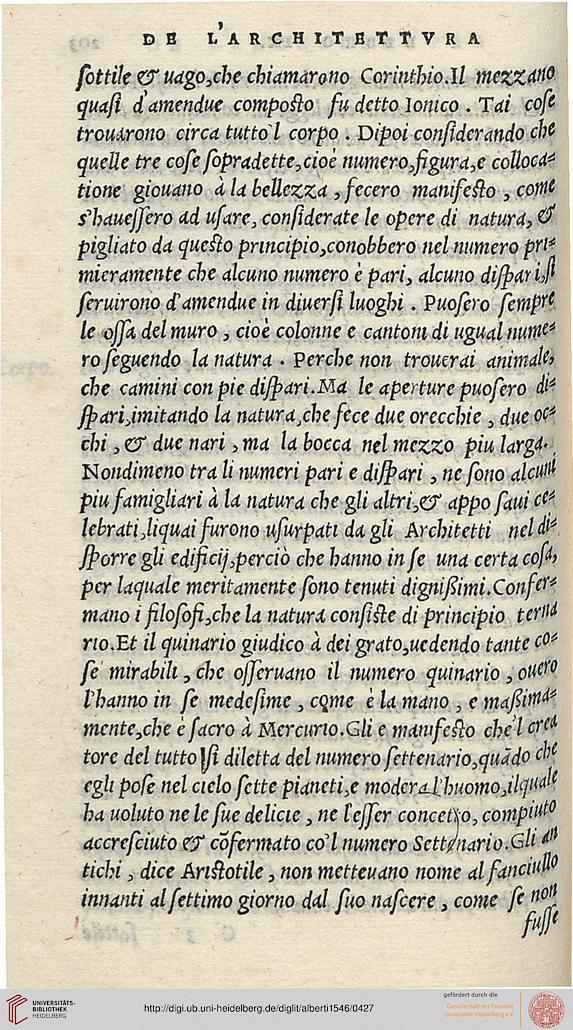 DE L'ARCHITETTVRA
ſottile & uago,che chiamarono Corinthio.Il mezzano
quaſi d'amendue compoſto fu detto Ionico . Tai coſe
trouarono circa tutto'l corpo . Dipoi conſiderando che
quelle tre coſe ſopradette,cioè numero,figura,e colloca=
tione giouano à la bellezza , fecero manifeſto , come
s'haueſſero ad uſare, conſiderate le opere di natura, &
pigliato da queſto principio,conobbero nel numero pri=
mieramente che alcuno numero è pari, alcuno diſpari,ſi
ſeruirono d'amendue in diuerſi luoghi . Puoſero ſempre
le oſſa del muro , cioè colonne e cantoni di ugual nume=
ro ſeguendo la natura . Perche non trouerai animale,
che camini con pie diſpari.Ma le aperture puoſero di=
ſpari,imitando la natura,che fece due orecchie , due oc=
chi , & due nari , ma la bocca nel mezzo piu larga.
Nondimeno tra li numeri pari e diſpari , ne ſono alcuni
piu famigliari à la natura che gli altri,& appo ſaui ce=
lebrati,liquai furono uſurpati da gli Architetti nel di=
ſporre gli edificij,perciò che hanno in ſe una certa coſa,
per laquale meritamente ſono tenuti digniſſimi.Confer=
mano i filoſofi,che la natura conſiſte di principio terna
rio.Et il quinario giudico à dei grato,uedendo tante co=
ſe mirabili , che oſſeruano il numero quinario , ouero
l'hanno in ſe medeſime , come è la mano , e maſſima=
mente,che è ſacro à Mercurio.Gli e manifeſto che'l crea
tore del tutto ſi diletta del numero ſettenario,quãdo che
egli poſe nel cielo ſette pianeti,e modera l'huomo,ilquale
ha voluto ne le ſue delicie , ne l'eſſer concetto, compiuto
accreſciuto & cõfermato co'l numero Settenario.Gli an
tichi , dice Ariſtotile , non metteuano nome al fanciullo
innanti al ſettimo giorno dal ſuo naſcere , come ſe non
fuſſe
UNIVERSITÄTS-
BIBLIOTHEK
HEIDELBERG
http://digi.ub.uni-heidelberg.de/diglit/alberti1546/0427
gefördert durch die
Gesellschaft der Freunde
Universität Heidelberg e.V.